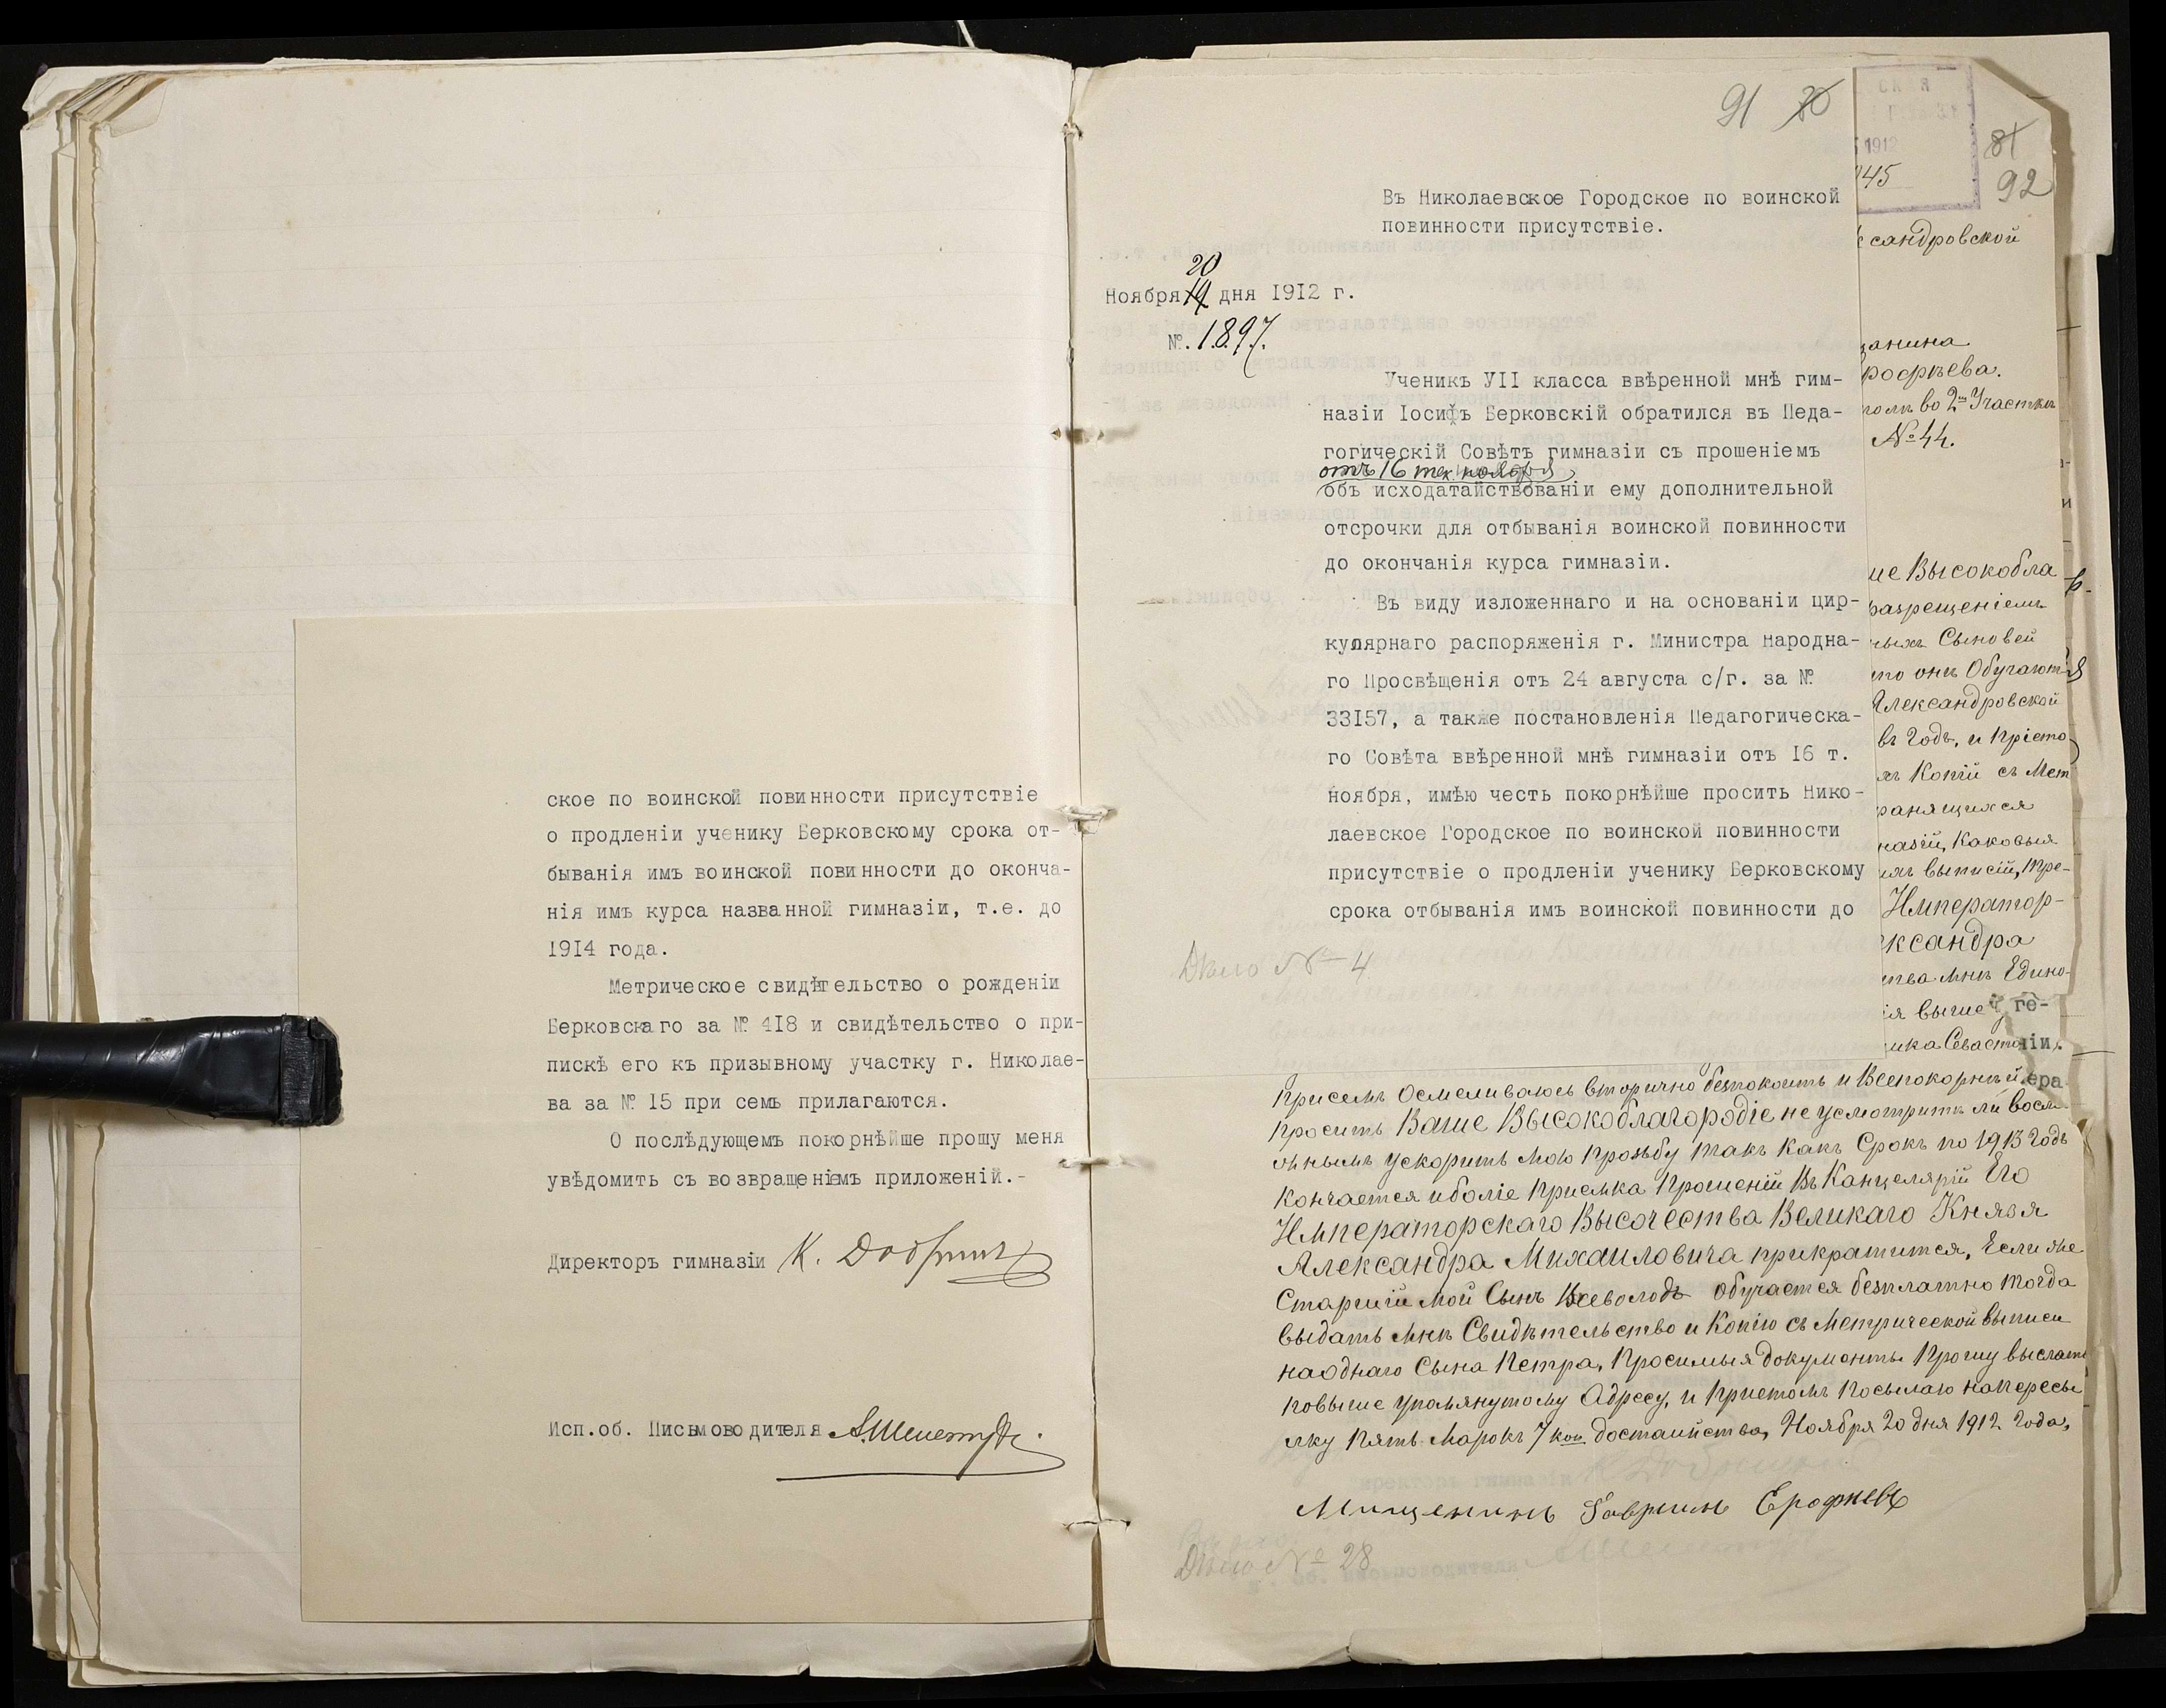 ское по воинской повинности присутствіе
о продленіи ученику Берковскому срока от-
быванія имъ воинской повинности до оконча-
нія имъ курса названной гимназіи, т.е. до
1914 года.
Метрическое свидѣтельство о рожденіи
Берковскаго за № 418 и свидѣтельство о при-
пискѣ его къ призывному участку г. Николае-
ва за № 15 при семъ прилагаются.
О послѣдующемъ покорнѣйше прошу меня
увѣдомить съ возвращеніемъ приложеній.-
Директоръ гимназіи К.
Исп.об. Письмоводителя
91 70
Въ Николаевское Городское по воинской
повинности присутствіе.
20
Ноября 19 дня 1912 г.
№. 1897.
Ученикъ УІІ класса ввѣренной мнѣ гим-
назіи Іосифъ Берковскій обратился въ Педа-
гогическій Совѣтъ гимназіи съ прошеніемъ
отъ 16 тек. ноября
объ исходатайствованіи ему дополнительной
отсрочки для отбыванія воинской повинности
до окончанія курса гимназіи.
Въ виду изложеннаго и на основаніи цир-
кулярнаго распоряженія г. Министра Народна-
го Просвѣщенія отъ 24 августа с/г. за №
33157, а также постановленія Педагогическа-
го Совѣта ввѣренной мнѣ гимназіи отъ 16 т.
ноября, имѣю честь покорнѣйше просить Нико-
лаевское Городское по воинской повинности
присутствіе о продленіи ученику Берковскому
срока отбыванія имъ воинской повинности до
Дѣло № 4
1912
945
81
92
сандровской
анина
рофѣева.
во 2м Участкѣ
№ 44.
ше Высокобла
разрещеніемъ
ныхъ Сыновей
то онѣ Обучаются
Александровской
въ Годъ, и Пріето
Копій съ Мет
ранящихся
назій, Каковыя
выписій, Тре-
Император-
ександра
ства мнѣ Едино-
ія выше
ика Севасто
ге-
ніи.
ера
Присемъ Осмеливаюсь вторично безпокоить и Всепокорнѣй
просить Ваше Высокоблагородіе не усмотритъ ли возм
жнымъ ускорить мою прозьбу такъ какъ Срокъ по 1913 Годъ
кончается и боліе приемка Прошеній Въ Канцелярій Его
Императорскаго Высочества Великаго Князя
Александра Михаиловича прикратится, Если же
Старшій мой Сынъ Всеволодъ обучается безплатно тогда
выдать мнѣ Свидѣтельство и Копію съ Метрической выписи
наоднаго Сына Петра, Просимыя документы Прошу выслать
повыше упомянутому Адресу, и приетомъ посылаю напересы
лку Пять Марокъ 7 коп достаийства, Ноября 20 дня 1912 Года,
Мищенинъ Гавриилъ Ерофѣевъ
Дѣло № 28